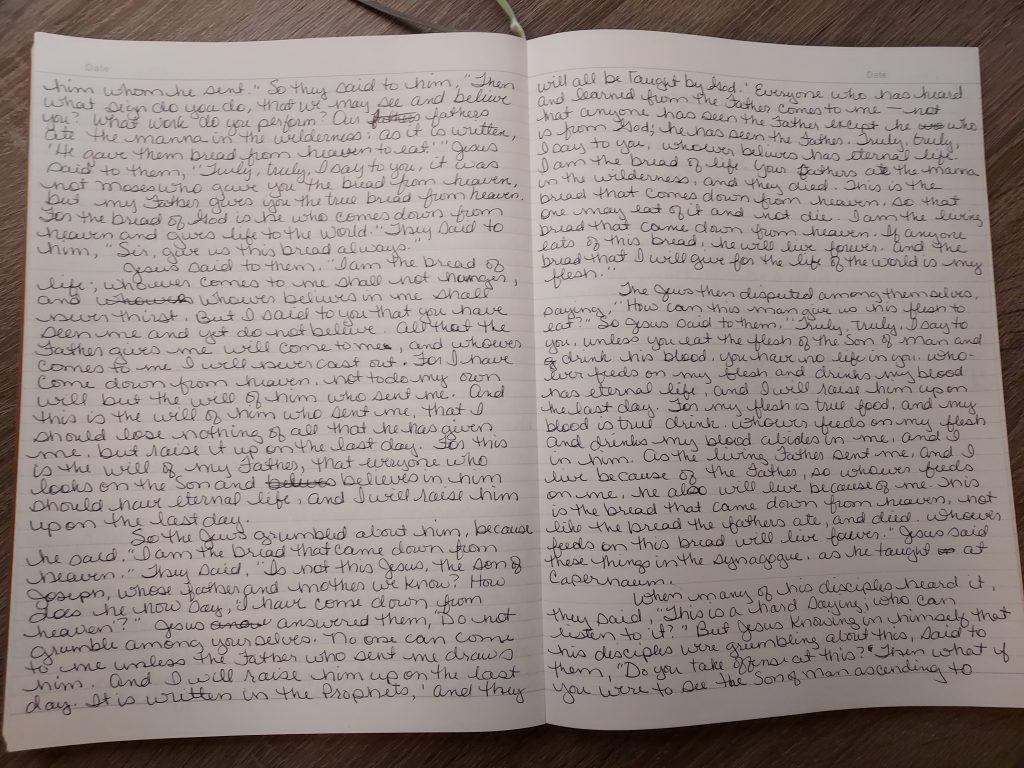 Date
him whom he sent." So they said to him, "Then
what sign do you do, that we may see and believe
you? What work do you perform? Our fathers fathers
ate the manna in the wilderness; as it is written,
'He gave them bread from heaven to eat.'" Jesus
said to them, "Truly, truly, I say to you, it was
not Moses who gave you the bread from heaven,
but my Father gives you the true bread from heaven.
For the bread of God is he who comes down from
heaven and gives life to the world." They said to
him, "Sir, give us this bread always."
Jesus said to them, "I am the bread of
life; whoever comes to me shall not hunger,
and whoever whoever believes in me shall
never thirst. But I said to you that you have
seen me and yet do not believe. All that the
Father gives me will come to me, and whoever
comes to me I will never cast out. For I have
come down from heaven, not to do my own
will but the will of him who sent me. And
this is the will of him who sent me, that I
should lose nothing of all that he has given
me, but raise it up on the last day. For this
is the will of my Father, that everyone who
looks on the Son and believes believes in him
should have eternal life, and I will raise him
up on the last day.
So the Jews grumbled about him, because
he said, "I am the bread that came down from
heaven." They said, "Is not this Jesus, the son of
Joseph, whose father and mother we know? How
does he now say, I have come down from
heaven?" Jesus answered them, "Do not
grumble among yourselves. No one can come
to me unless the Father who sent me draws
him. And I will raise him up on the last
day. It is written in the Prophets, 'and they
Date
will all be taught by God.' Everyone who has heard
and learned from the Father comes to me — not
that anyone has seen the Father except he who
is from God; he has seen the Father. Truly, truly,
I say to you, whoever believes has eternal life.
I am the bread of life. Your fathers ate the manna
in the wilderness, and they died. This is the
bread that comes down from heaven, so that
one may eat of it and not die. I am the living
bread that came down from heaven. If anyone
eats of this bread, he will live forever. And the
bread that I will give for the life of the world is my
flesh."
The Jews then disputed among themselves,
saying, "How can this man give us his flesh to
eat?" So Jesus said to them, "Truly, truly, I say to
you, unless you eat the flesh of the Son of Man and
drink his blood, you have no life in you. Who-
ever feeds on my flesh and drinks my blood
has eternal life, and I will raise him up on
the last day. For my flesh is true food, and my
blood is true drink. Whoever feeds on my flesh
and drinks my blood abides in me, and I
in him. As the living Father sent me, and I
live because of the Father, so whoever feeds
on me, he also will live because of me. This
is the bread that came down from heaven, not
like the bread the fathers ate, and died. Whoever
feeds on this bread will live forever." Jesus said
these things in the synagogue, as he taught at
Capernaum.
When many of his disciples heard it,
they said, "This is a hard saying; who can
listen to it?" But Jesus knowing in himself that
his disciples were grumbling about this, said to
them, "Do you take offense at this? Then what if
you were to see the Son of Man ascending to